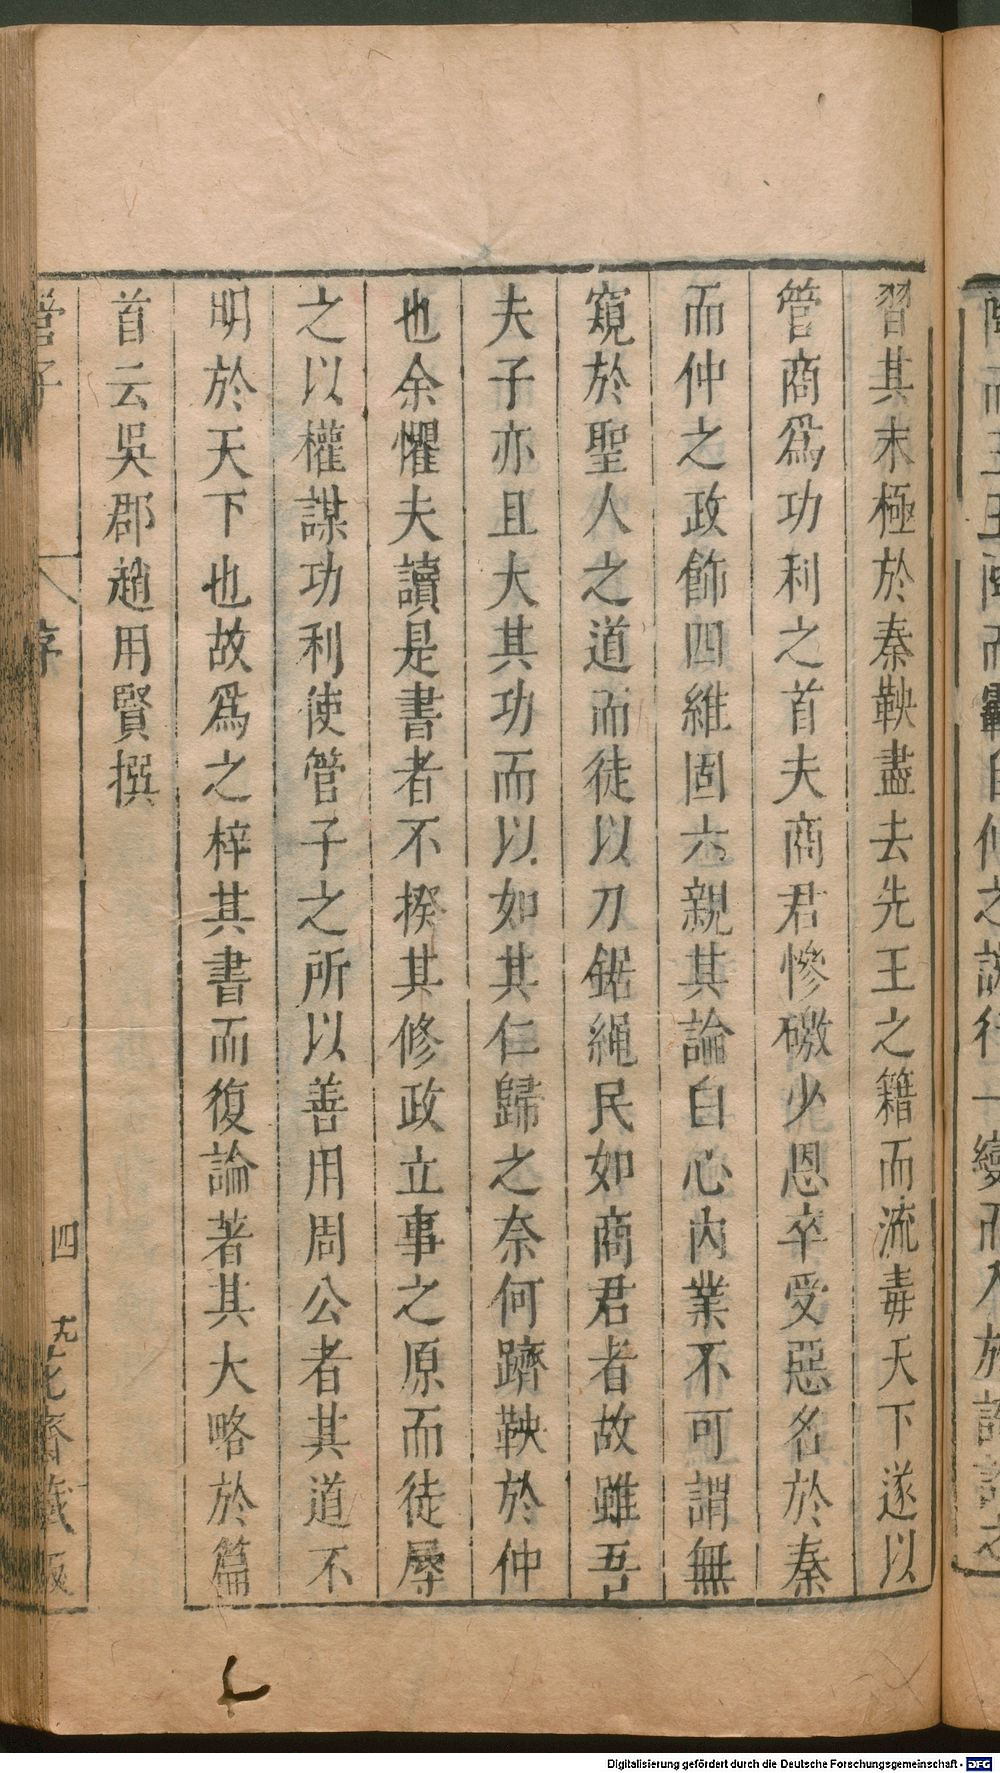 習其末極於秦鞅盡去先王之籍而流毒天下遂以
管商爲功利之首夫商君慘礉少恩卒受惡名於秦
而仲之政飾四維固六親其論白心內業不可謂無
窺於聖人之道而徒以刀鋸繩民如商君者故雖吾
夫子亦且大其功而以如其仁歸之奈何躋鞅於仲
也余懼夫讀是書者不揆其修政立事之原而徒辱
之以權謀功利使管子之所以善用周公者其道不
明於天下也故爲之梓其書而復論著其大略於篇
首云吳郡趙用賢撰
管子
序
四
Digitalisierung gefördert durch die Deutsche Forschungsgemeinschaft - DFG